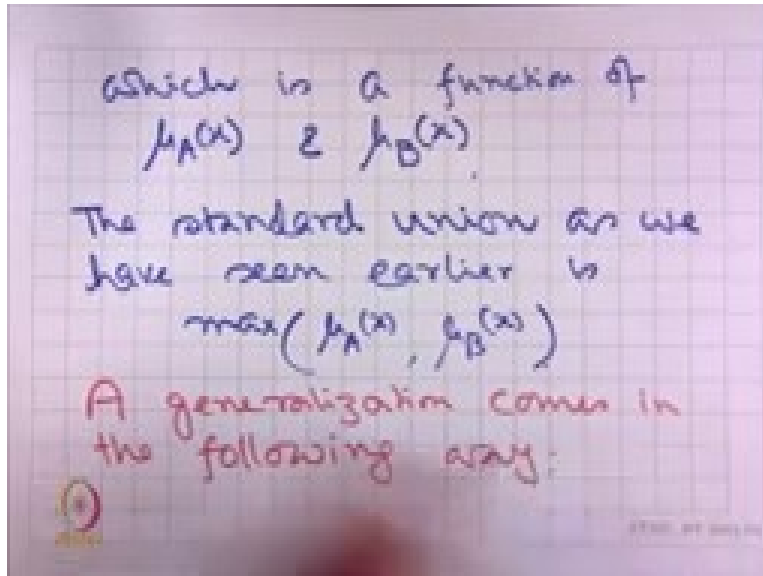 which is a function of
μA(x) & μB(x).
The standard union as we
have seen earlier is
max(μA(x), μB(x))
A generalization comes in
the following way: